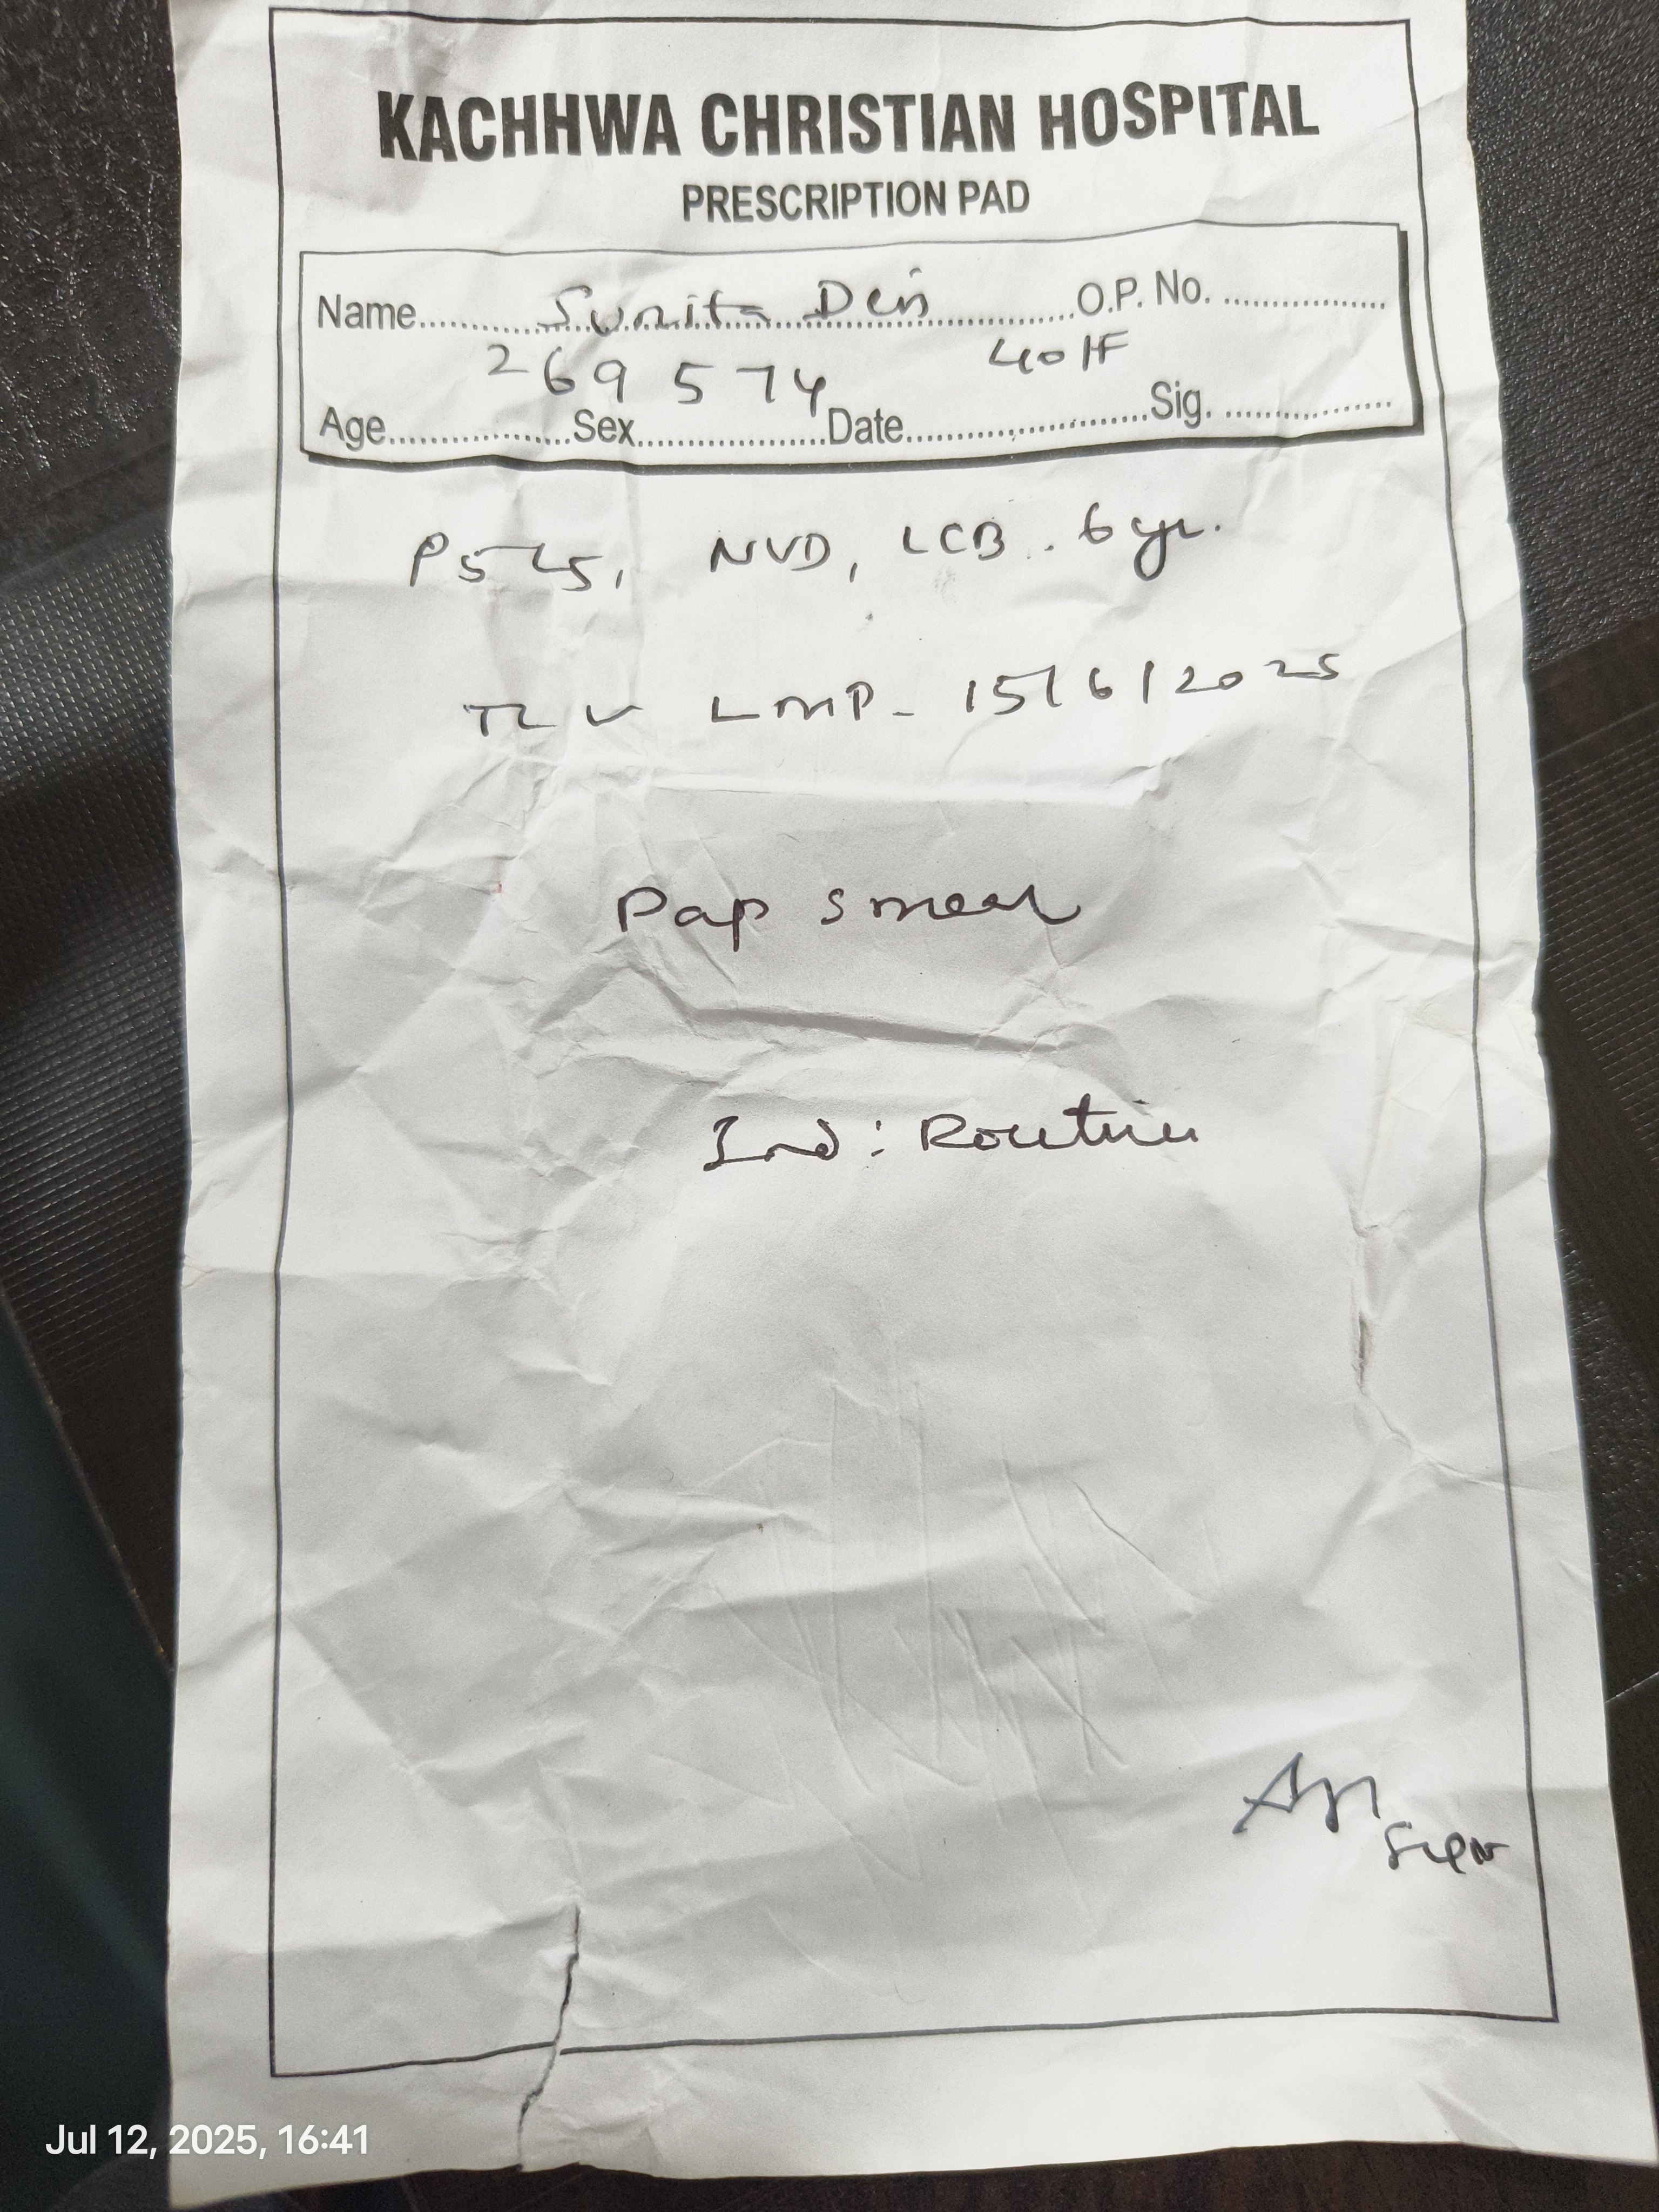 KACHHWA CHRISTIAN HOSPITAL
PRESCRIPTION PAD
Name.......... Sunita Devi ..........O.P. No. ..........
269574 40/F
Age..........Sex..........Date..........Sig. ..........
P5L5, NVD, LCB. 6 yr.
TL ✓ LMP - 15/6/2025
Pap smear
Ind: Routine
Jul 12, 2025, 16:41